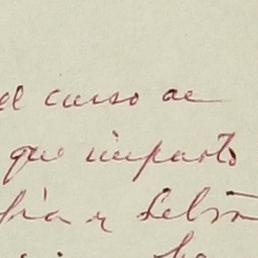 el curso de
que imparto
fía y Lebrón